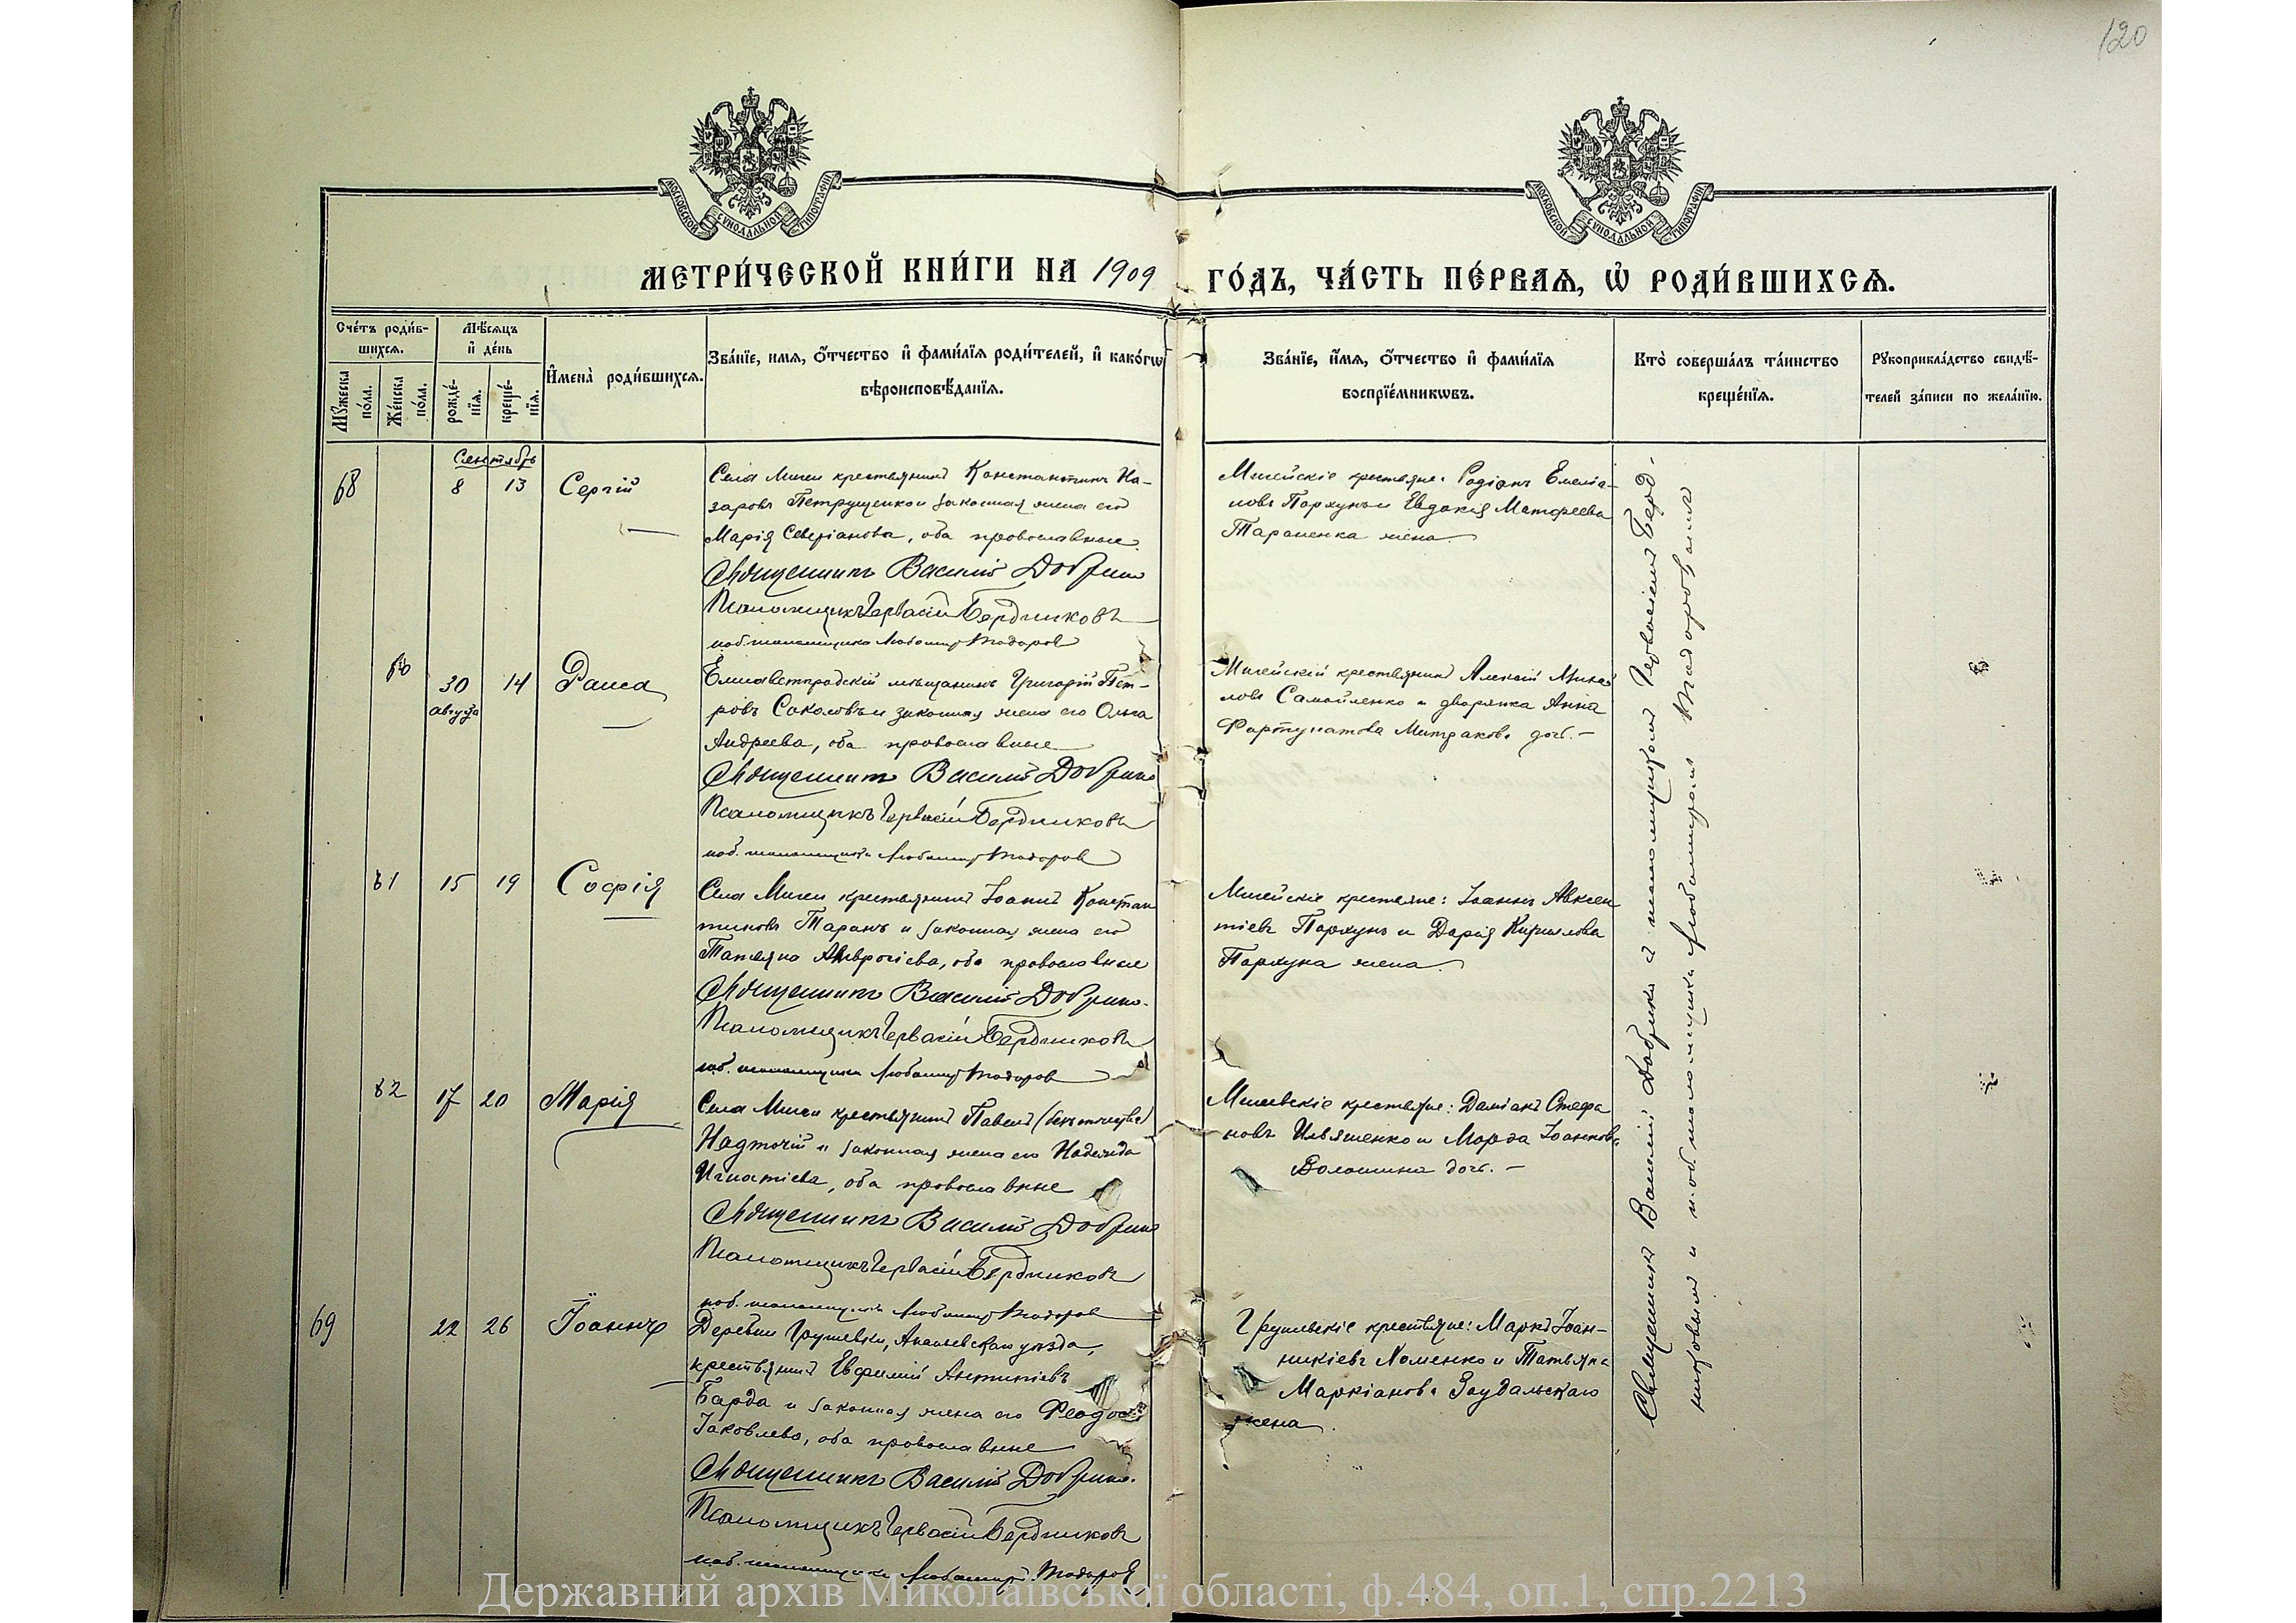 120
МОСКОВСКОЙ СѴНОДАЛЬНОЙ ТИПОГРАФІИ
МОСКОВСКОЙ СѴНОДАЛЬНОЙ ТИПОГРАФІИ
МЕТРИ́ЧЕСКОЙ КНИ́ГИ НА 1909 ГО́ДЪ, ЧА́СТЬ ПЕ́РВАѦ, Ѽ РОДИ́ВШИХСѦ.
Сче́тъ роди́в-
шихсѧ.
Мꙋжеска по́ла.
Же́нска по́ла.
Мѣ́сѧцъ
и҆ де́нь
рожде́-
нїѧ.
креще́-
нїѧ.
И҆мена̀ роди́вшихсѧ.
Зва́нїе, имѧ, ѻ҆́тчество и҆ фами́лїѧ роди́телей, и҆ како́гѡ
вѣроисповѣ́данїѧ.
Зва́нїе, и҆́мѧ, ѻ҆́тчество и҆ фами́лїѧ
воспрїе́мникѡвъ.
Кто̀ соверша́лъ та́инство
креще́нїѧ.
Рꙋкоприкла́дство свидѣ́-
телей за́писи по жела́нїю.
Сентябрь
68 8 13 Сергій
Села Мигеи крестьянинъ Константинъ На-
заровъ Петрущенко и законная жена его
Марія Северіанова, оба православные.
Священникъ Василій Добрино
Псаломщикъ Гервасій Бердниковъ
Любомир Тодоров
Мигейскіе крестьяне: Родіонъ Емеліа-
новъ Пархунъ и Евдокія Матфеева
Тараненка жена.
80 30 августа 14 Раиса
Елисаветградскій мѣщанинъ Григорій Пет-
ровъ Соколовъ и законная жена его Ольга
Андреева, оба православные
Священникъ Василій Добрино
Псаломщикъ Гервасій Бердниковъ
Любомир Тодоров
Мигейскій крестьянинъ Алексій Михаи
ловъ Самойленко и дворянка Анна
Фортунатова Митракова доч.
81 15 19 Софія
Села Мигеи крестьянинъ Іоаннъ Констан
тиновъ Таранъ и законная жена его
Татьяна Амвросіева, оба православные
Священникъ Василій Добрино.
Псаломщикъ Гервасій Бердниковъ
Любомир Тодоров
Мигейскіе крестьяне: Іоаннъ Авксен
тіевъ Пархунъ и Дарія Кириллова
Пархуна жена.
82 17 20 Марія
Села Мигеи крестьянинъ Павелъ (безъ отчества)
Надточій и законная жена его Надежда
Игнатіева, оба православные
Священникъ Василій Добрино
Псаломщикъ Гервасій Бердниковъ
Любомир Тодоров
Мигейскіе крестьяне: Даміанъ Стефа
новъ Ильяшенко и Марѳа Іоаннова
Волошина доч.
69 22 26 Іоаннъ
Деревни Грушевки, Ананьевскаго уѣзда,
крестьянинъ Евфимій Антипіевъ
Барда и законная жена его
Іаковлева, оба православные
Священникъ Василій Добрино.
Псаломщикъ Гервасій Бердниковъ
Любомир Тодоров
Грушевскіе крестьяне: Маркъ Іоан-
никіевъ Хоменко и Татьяна
Маркіанова Заудальскаго
жена.
Священникъ Василій Добрино съ псаломщикомъ Гервасіемъ Берд-
никовымъ и и. об. псаломщика Любомиромъ Тодоровымъ
Державний архів Миколаївської області, ф.484, оп.1, спр.2213